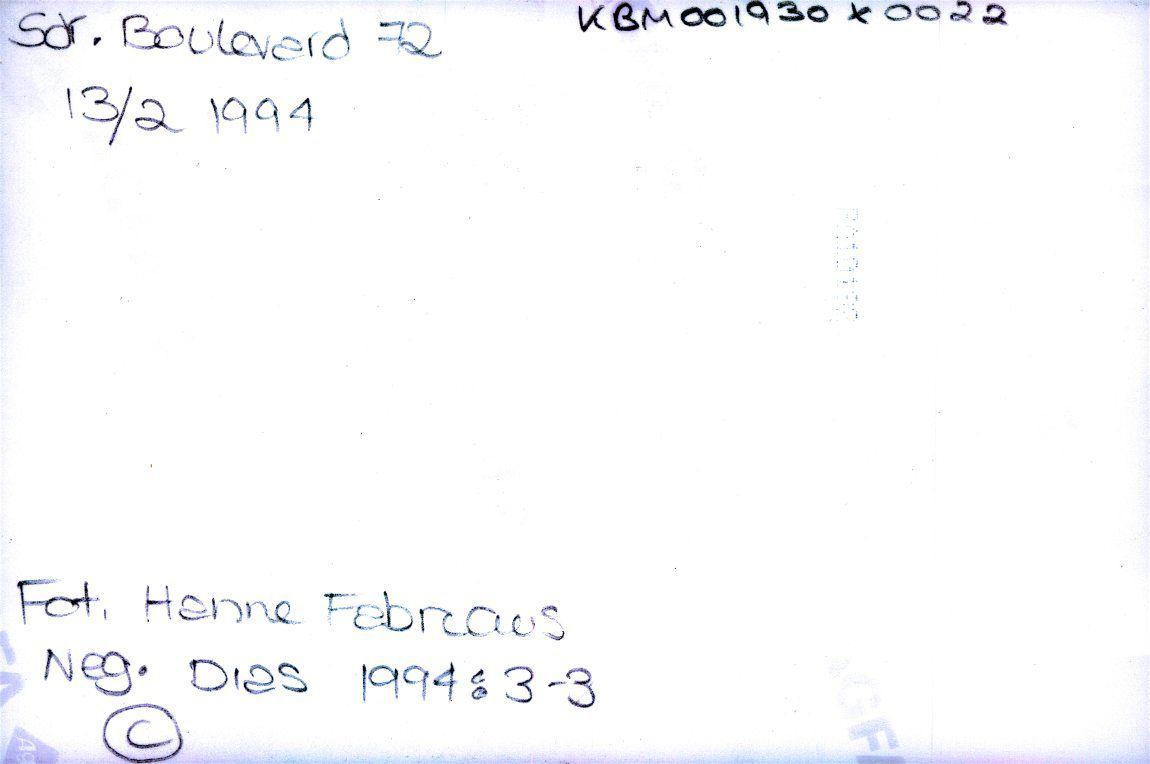 Sdr. Boulevard 72
KBM001930 x 0022
13/2 1994
Fot. Hanne Fabricius
Neg. Dias 1994: 3-3
C